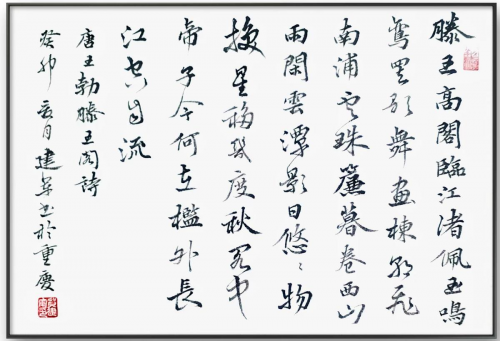 滕王高閣臨江渚佩玉鳴
鸞罷歌舞畫棟朝飛
南浦雲珠簾暮卷西山
雨閑雲潭影日悠悠物
換星移幾度秋閣中
帝子今何在檻外長
江空自流
唐王勃滕王閣詩
癸卯亥月建軍書於重慶